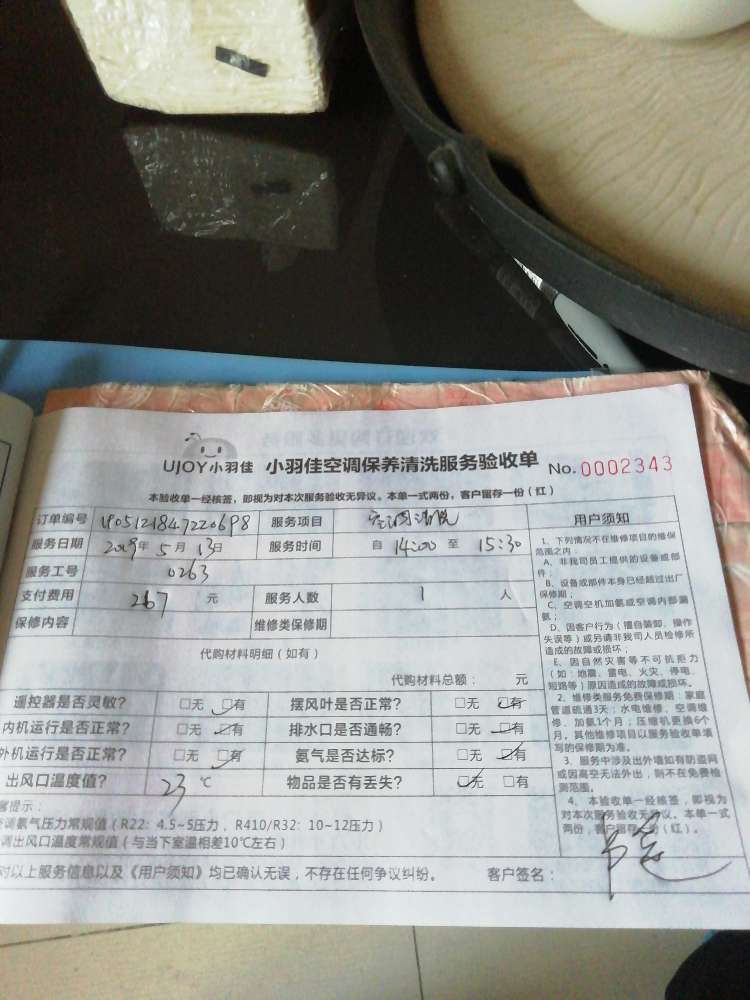 UJOY小羽佳 小羽佳空调保养清洗服务验收单 No.0002343
本验收单一经核签，即视为对本次服务验收无异议。本单一式两份，客户留存一份（红）
订单编号 服务项目 空调清洗
服务日期 2019年 5月 13日 服务时间 自 14:00 至 15:30
服务工号 0263
支付费用 267 元 服务人数 1 人
保修内容 维修类保修期
代购材料明细（如有）
代购材料总额： 元
遥控器是否灵敏？ □无 □有 摆风叶是否正常？ □无 □有
内机运行是否正常？ □无 □有 排水口是否通畅？ □无 □有
外机运行是否正常？ □无 □有 氨气是否达标？ □无 □有
出风口温度值？ 23 ℃ 物品是否有丢失？ □无 □有
提示：
调氨气压力常规值（R22：4.5~5压力，R410/R32：10~12压力）
调出风口温度常规值（与当下室温相差10℃左右）
对以上服务信息以及《用户须知》均已确认无误，不存在任何争议纠纷。 客户签名：
用户须知
1、下列情况不在维修项目的维保
范围之内：
A、非我司员工提供的设备或部
件；
B、设备或部件本身已经超过出厂
保修期；
C、空调空机加氨或空调内部漏
氨；
D、因客户行为（擅自装卸、操作
失误等）或另请非我司人员检修所
造成的故障或损坏；
E、因自然灾害等不可抗拒力
（如：地震、雷电、火灾、停电、
短路等）原因造成的故障或损坏。
2、维修类服务免费保修期：家庭
管道疏通3天；水电维修、空调维
修、加氨1个月；压缩机更换6个
月，其他维修项目以服务验收单填
写的保修期为准。
3、服务中涉及出外墙如有防盗网
或因高空无法外出，则不在免费检
测范围。
4、本验收单一经核签，即视为
对本次服务验收无异议。本单一式
两份，客户留存一份（红）。